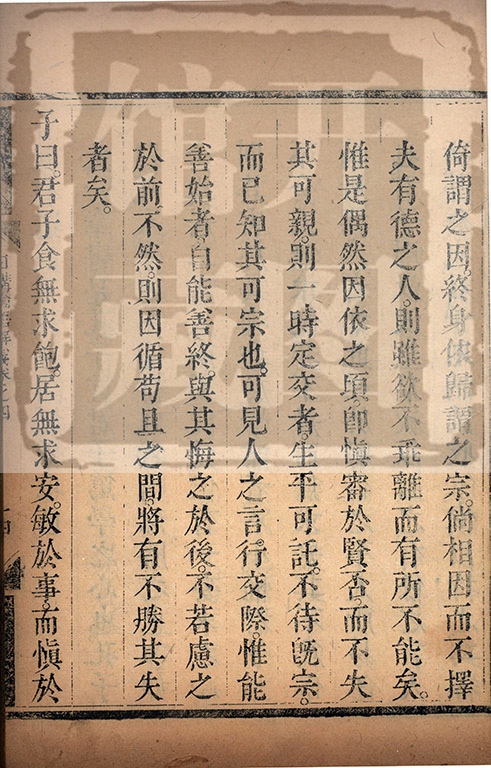 倚謂之因。終身依歸謂之宗。倘相因而不擇
夫有德之人。則雖欲不乖離而有所不能矣。
惟是偶然因依之頃。卽愼審於賢否。而不失
其可親。則一時定交者。生平可託。不待旣宗。
而已知其可宗也。可見人之言。行交際。惟能
善始者。自能善終。與其悔之於後。不若慮之
於前。不然則因循苟且之間。將有不勝其失
者矣。
子曰。君子食無求飽。居無求安。敏於事。而愼於